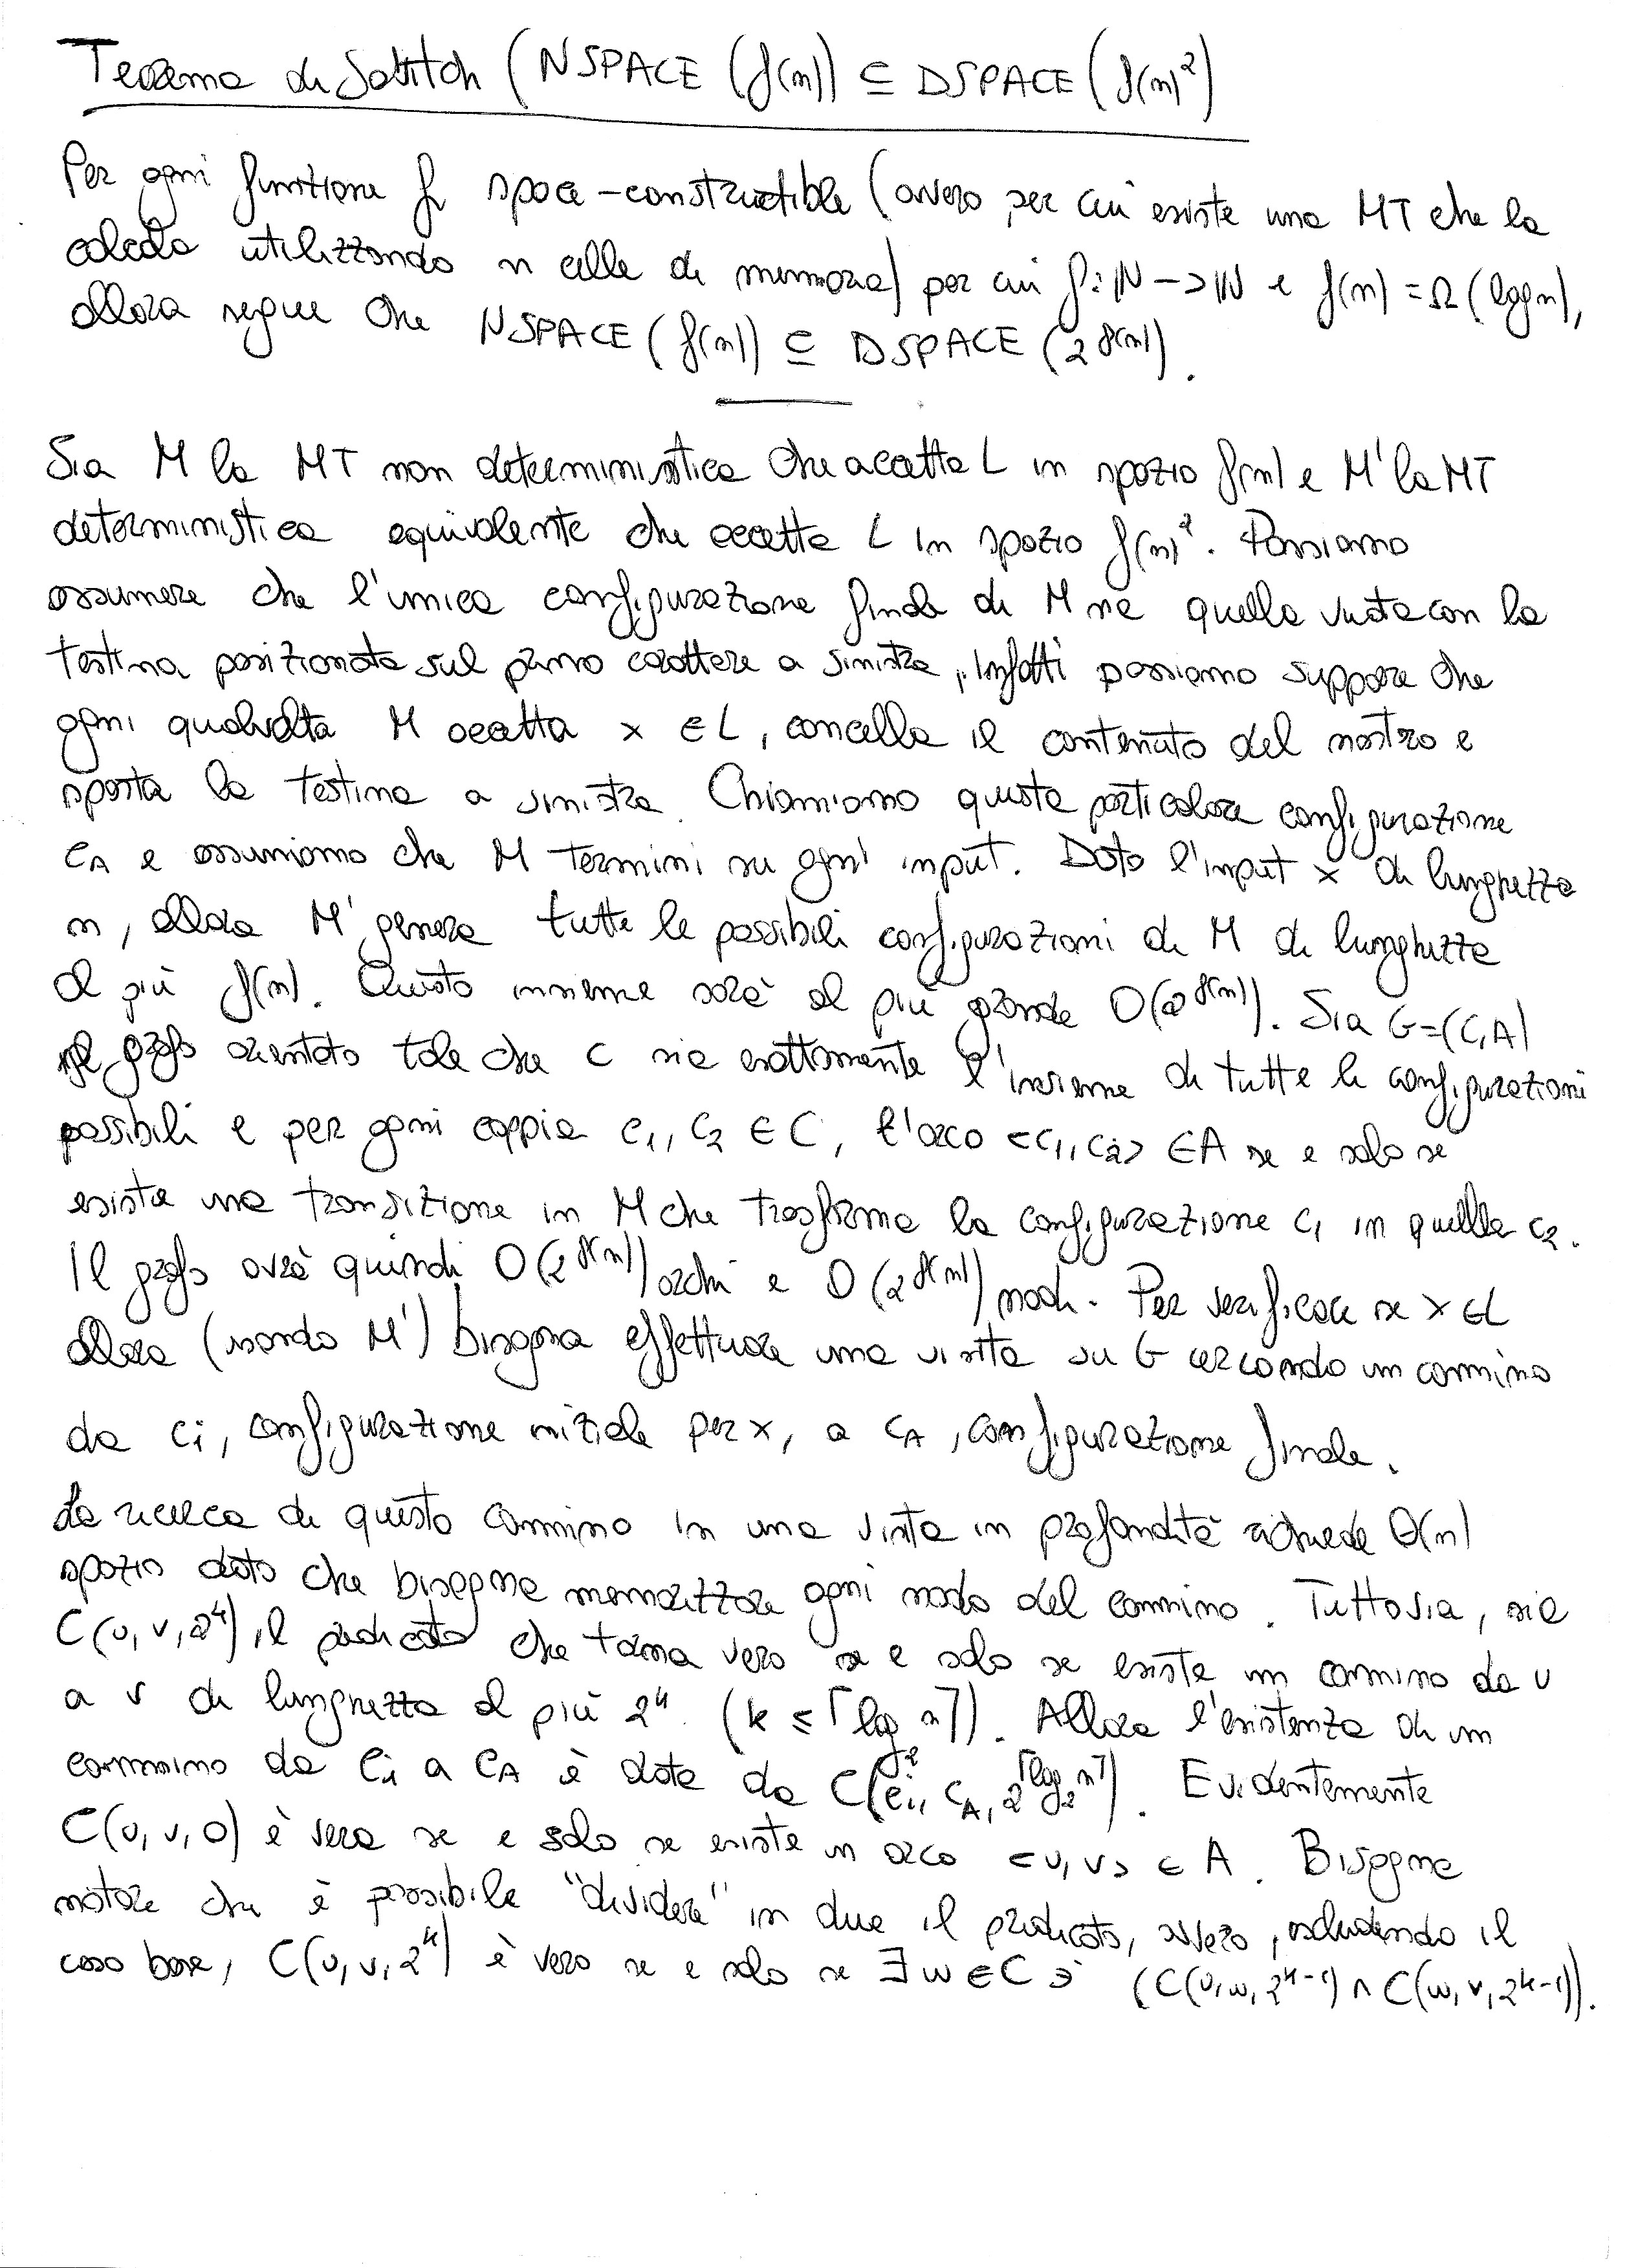 Teorema di Savitch (NSPACE (f(n)) ⊆ DSPACE (f(n)²)
Per ogni funzione f space-constructible (ovvero per cui esiste una MT che la
calcola utilizzando n celle di memoria) per cui f: ℕ -> ℕ e f(n) = Ω(log n),
allora segue che NSPACE (f(n)) ⊆ DSPACE (2^f(n)).
Sia M la MT non deterministica che accetta L in spazio f(n) e M' la MT
deterministica equivalente che accetta L in spazio f(n)². Possiamo
assumere che l'unica configurazione finale di M sia quella vuota con la
testina posizionata sul primo carattere a sinistra, infatti possiamo supporre che
ogni qualvolta M accetta x ∈ L, cancella il contenuto del nastro e
sposta la testina a sinistra. Chiamiamo questa particolare configurazione
C_A e assumiamo che M termini su ogni input. Dato l'input x di lunghezza
n, allora M' genera tutte le possibili configurazioni di M di lunghezza
al più f(n). Questo insieme sarà al più grande O(2^f(n)). Sia G=(C,A)
il grafo orientato tale che C sia esattamente l'insieme di tutte le configurazioni
possibili e per ogni coppia c₁, c₂ ∈ C, l'arco <c₁, c₂> ∈ A se e solo se
esiste una transizione in M che trasforma la configurazione c₁ in quella c₂.
Il grafo avrà quindi O(2^f(n)) archi e O(2^f(n)) nodi. Per verificare se x ∈ L
allora (usando M') bisogna effettuare una visita su G cercando un cammino
da c_i, configurazione iniziale per x, a c_A, configurazione finale.
La ricerca di questo cammino in una visita in profondità richiede Θ(n)
spazio dato che bisogna memorizzare ogni nodo del cammino. Tuttavia, sia
C(u, v, 2^k), il predicato che torna vero se e solo se esiste un cammino da u
a v di lunghezza al più 2^k. (k ≤ ⌈log₂ n⌉). Allora l'esistenza di un
cammino da C_i a C_A è data da C(c_i, c_A, 2^⌈log₂ n⌉). Evidentemente
C(u, v, 0) è vera se e solo se esiste un arco <u, v> ∈ A. Bisogna
notare che è possibile "dividere" in due il predicato, ovvero, escludendo il
caso base, C(u, v, 2^k) è vero se e solo se ∃ w ∈ C ∋' (C(u, w, 2^k-1) ∧ C(w, v, 2^k-1)).